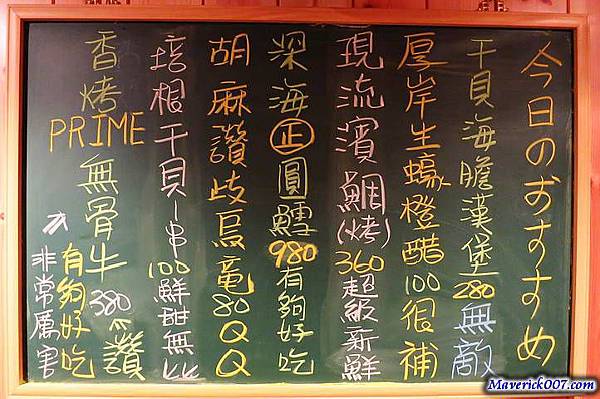 今日のおすすめ
干貝海膽漢堡280無敵
厚岸生蠔橙醋100很補
現流濱鯛(烤)360超級新鮮
深海正圓鱈980有夠好吃
胡麻讚歧烏竜80QQ
培根干貝一串100鮮甜無比
香烤PRIME無骨牛380讚
有夠好吃
非常厲害
Maverick007.com